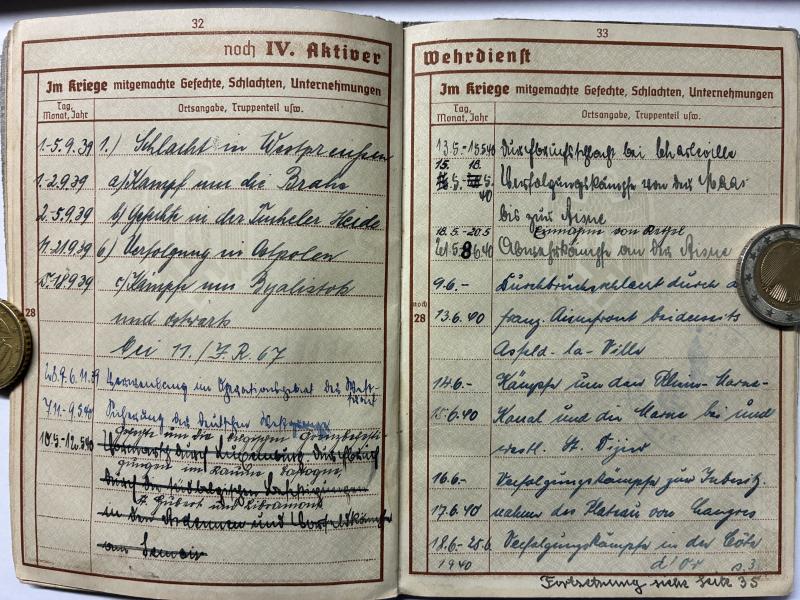 32
noch IV. Aktiver
Im Kriege mitgemachte Gefechte, Schlachten, Unternehmungen
Tag, Monat, Jahr
Ortsangabe, Truppenteil usw.
1.-5.9.39 1.) Schlacht in Westpreussen
1.-2.9.39 a) Kampf um die Brahe
2.-5.9.39 b) Gefecht in der Tucheler Heide
21.9.39 6) Verfolgung in Ostpolen
18.9.39 c) Kämpfe um Byalistok
und ostwärts
28
bei 11./I.R. 67
Verwendung im Operationsgebiet der West-
front
Sicherung der deutschen Westgrenze
10.5.-12.5.40
Gefechte um die belgischen Grenzbefesti-
Vormarsch durch Luxemburg, Durchbruch
gungen im Raume Bastogne,
durch die südbelgischen Befestigungen
St. Hubert und Libramont
in den Ardennen und Vorfeldkämpfe
am Semois
33
Wehrdienst
Im Kriege mitgemachte Gefechte, Schlachten, Unternehmungen
Tag, Monat, Jahr
Ortsangabe, Truppenteil usw.
13.5.-15.5.40 Durchbruchschlacht bei Charleville
15. 18.
5. 5. 40 Verfolgungskämpfe von der Maas
bis zur Aisne
18.5.-20.5 Einnahme von Rethel
21.5 8.6.40 Abwehrkämpfe an der Aisne
9.6.- Durchbruchschlacht durch d
noch 28
13.6.40 franz. Aisnefront beiderseits
Asfeld-la-Ville
14.6.- Kämpfe um den Rhein-Marne-
15.6.40 Kanal und die Marne bei und
westl. St. Dizier
16.6.- Verfolgungskämpfe zur Inbesitz-
17.6.40 nahme des Plateau von Langres
18.6.-25.6. Verfolgungskämpfe in der Côte
1940 d'Or
Fortsetzung siehe Seite 35